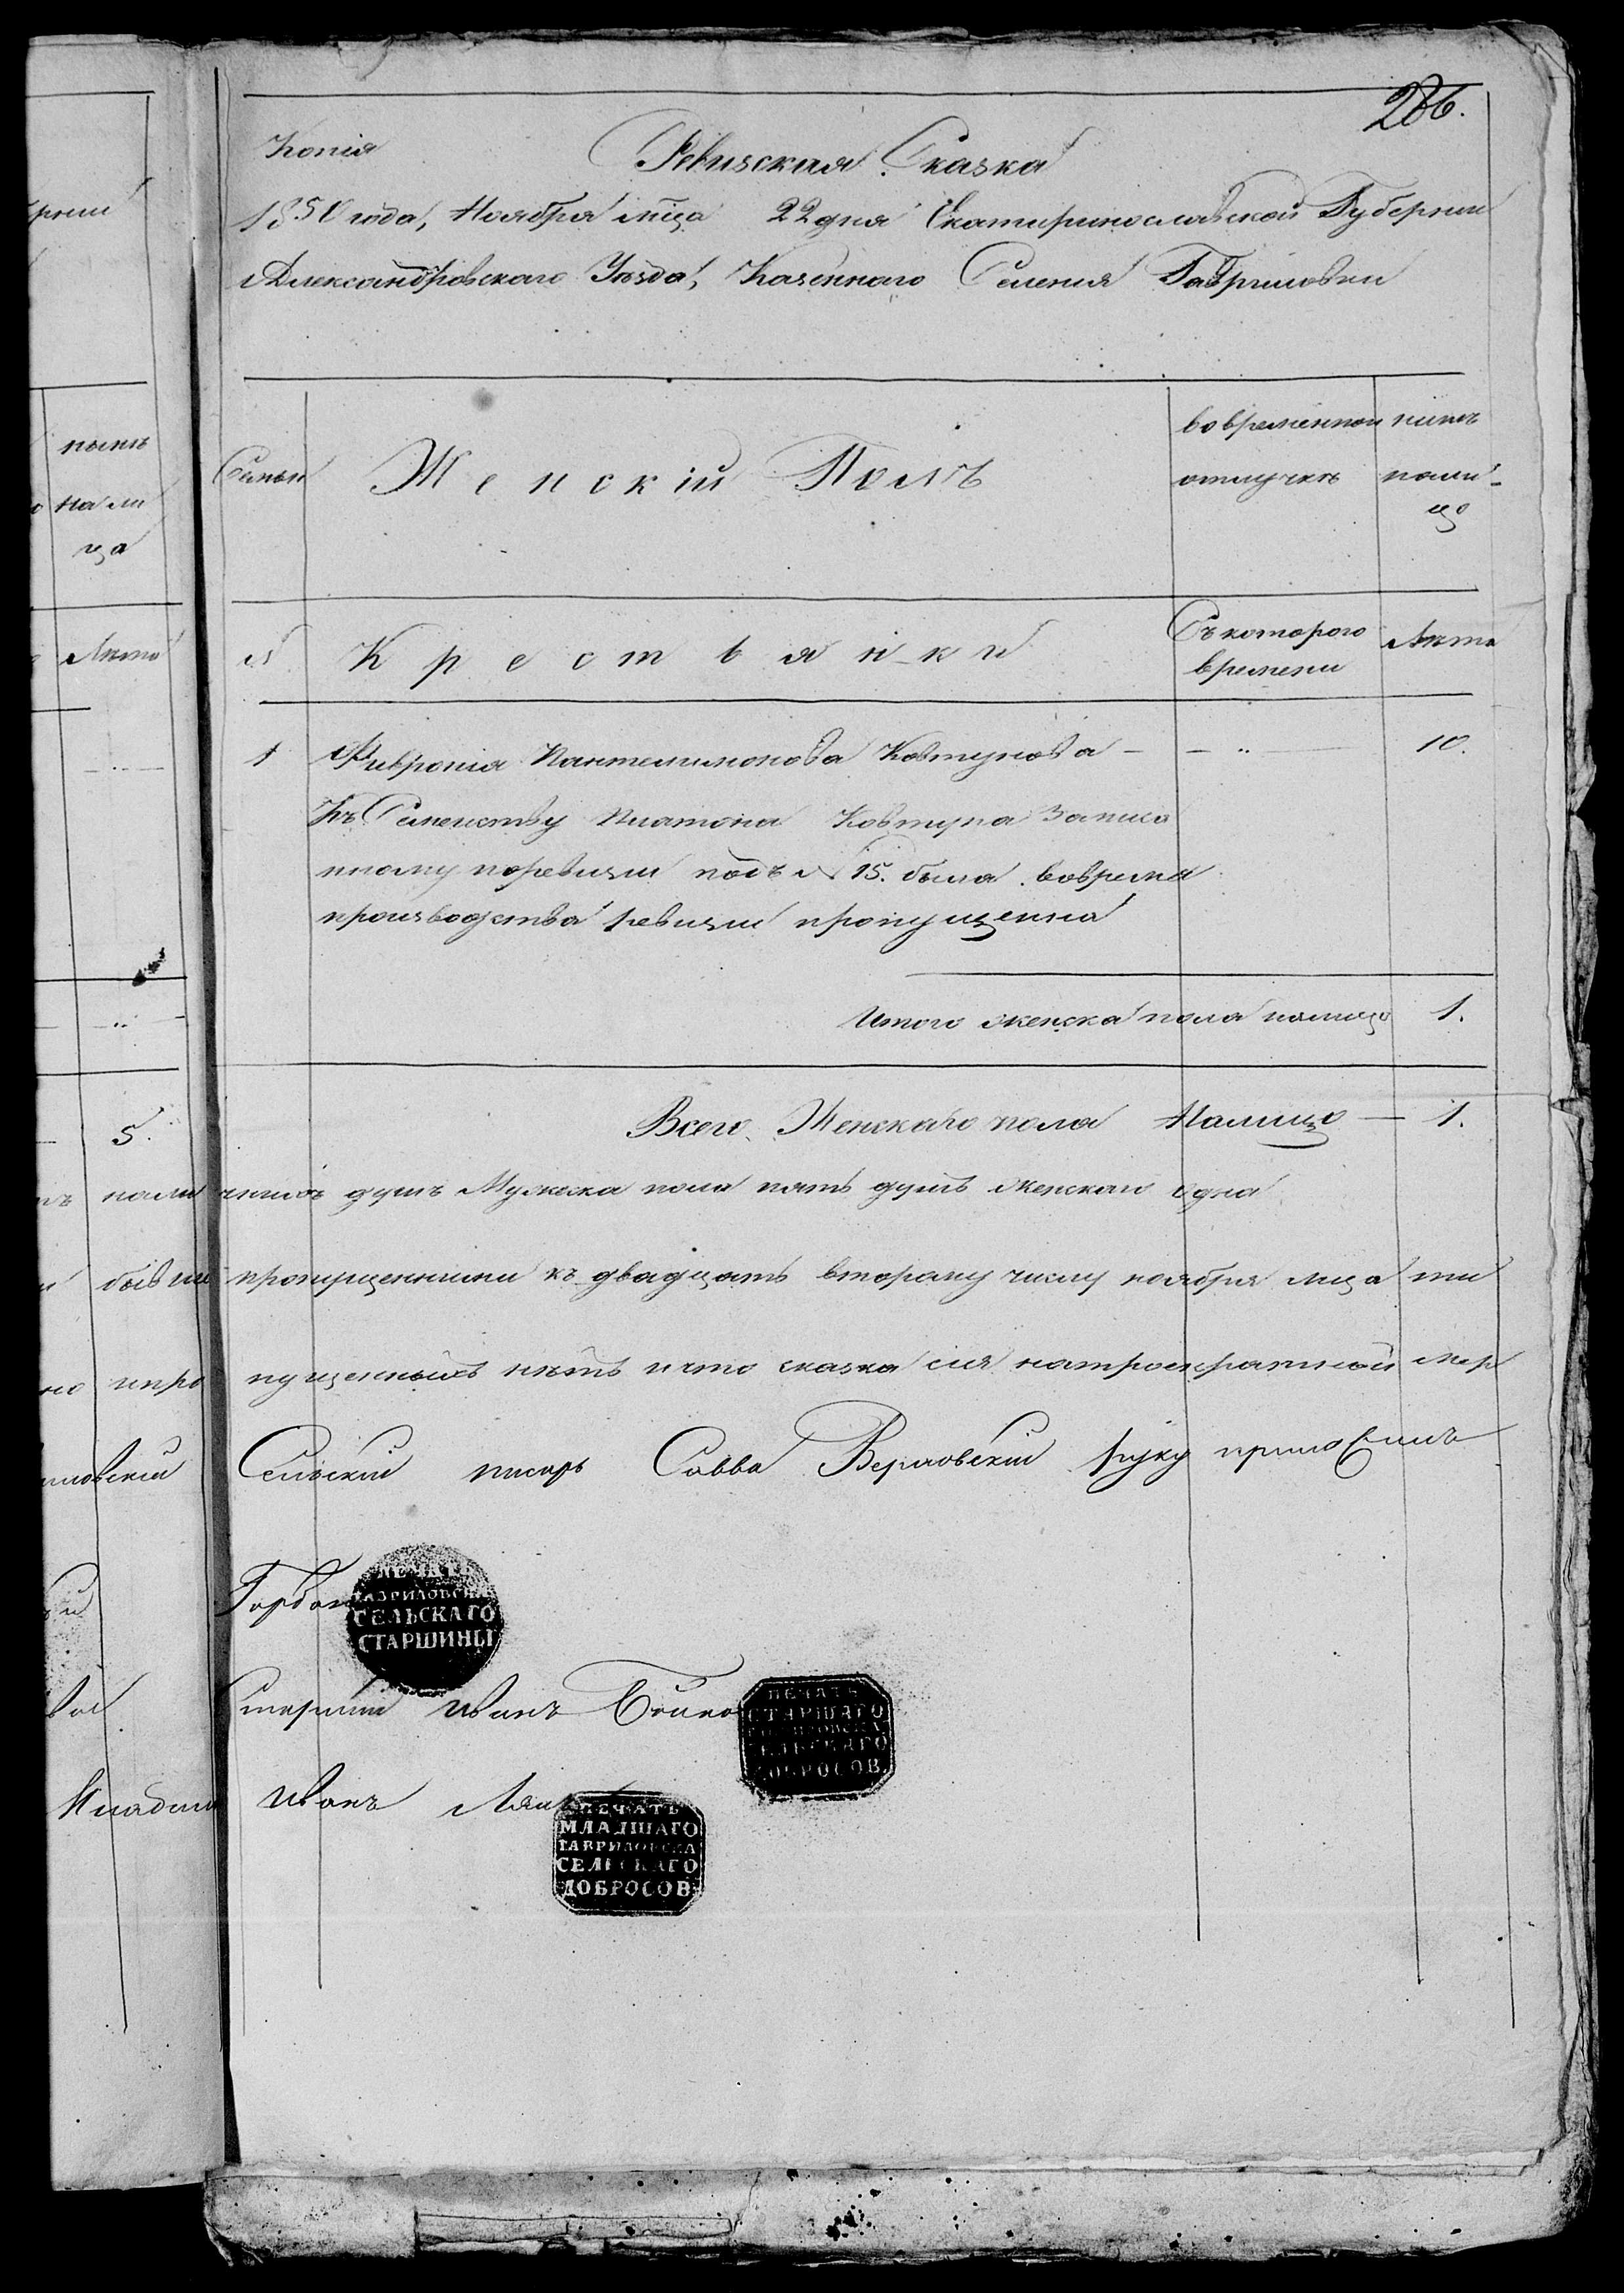 286.
Копія
Ревизская Сказка
1850 года, Ноября мца 22 дня Екатеринославской Губерніи
Александровскаго Уѣзда, Казеннаго Селенія Гавриловки
Семьи
Женскій Полъ
вовременной отлучкѣ
нынѣ налицо
№
Крестьянки
Съкоторого времени
Лѣта
1 Февронія Пантелимонова Ковтунова — — „ — 10.
Къ Семейству Платона Ковтуна Записа
нному поревизіи подъ № 15. была вовремя
производства ревизіи пропущенна
Итого женска пола налицо 1.
Всего Женскаго пола Налицо — 1.
душъ Мужеска пола пять душъ женскаго одна
пропущенными къ двадцать второму числу ноября мца
пущенныхъ нѣтъ и что сказка сія
Сельскій писарь Савва Верловскій руку приложилъ
ПЕЧАТЬ
ГАВРИЛОВСКА
СЕЛЬСКАГО
СТАРШИНЫ
Старшій Иванъ Бойко
ПЕЧАТЬ
СТАРШАГО
СЕЛЬСКАГО
ДОБРОСОВ
Иванъ
ПЕЧАТЬ
МЛАДШАГО
ГАВРИЛОВСКА
СЕЛЬСКАГО
ДОБРОСОВ
нынѣ
на ли
ца
Лѣта
5.
нали
бывши
ипро